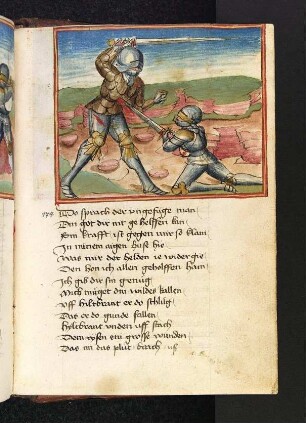 Do sprach der ungefuge man
Din got dir nit ge helffen kan
Din krafft ist gegen mir so klain
In minem aigen huse hie
Was mir der helden ie wider gie
Den hon ich allen geholffen hain
Ich gib dir sin genug
Mich muget din wildes kallen
Uff hiltbrant er do schlug
Das er do gunde fallen
Hiltbrant unden uff stach
Dem risen ein grosse wunden
Das im das plut brach uß